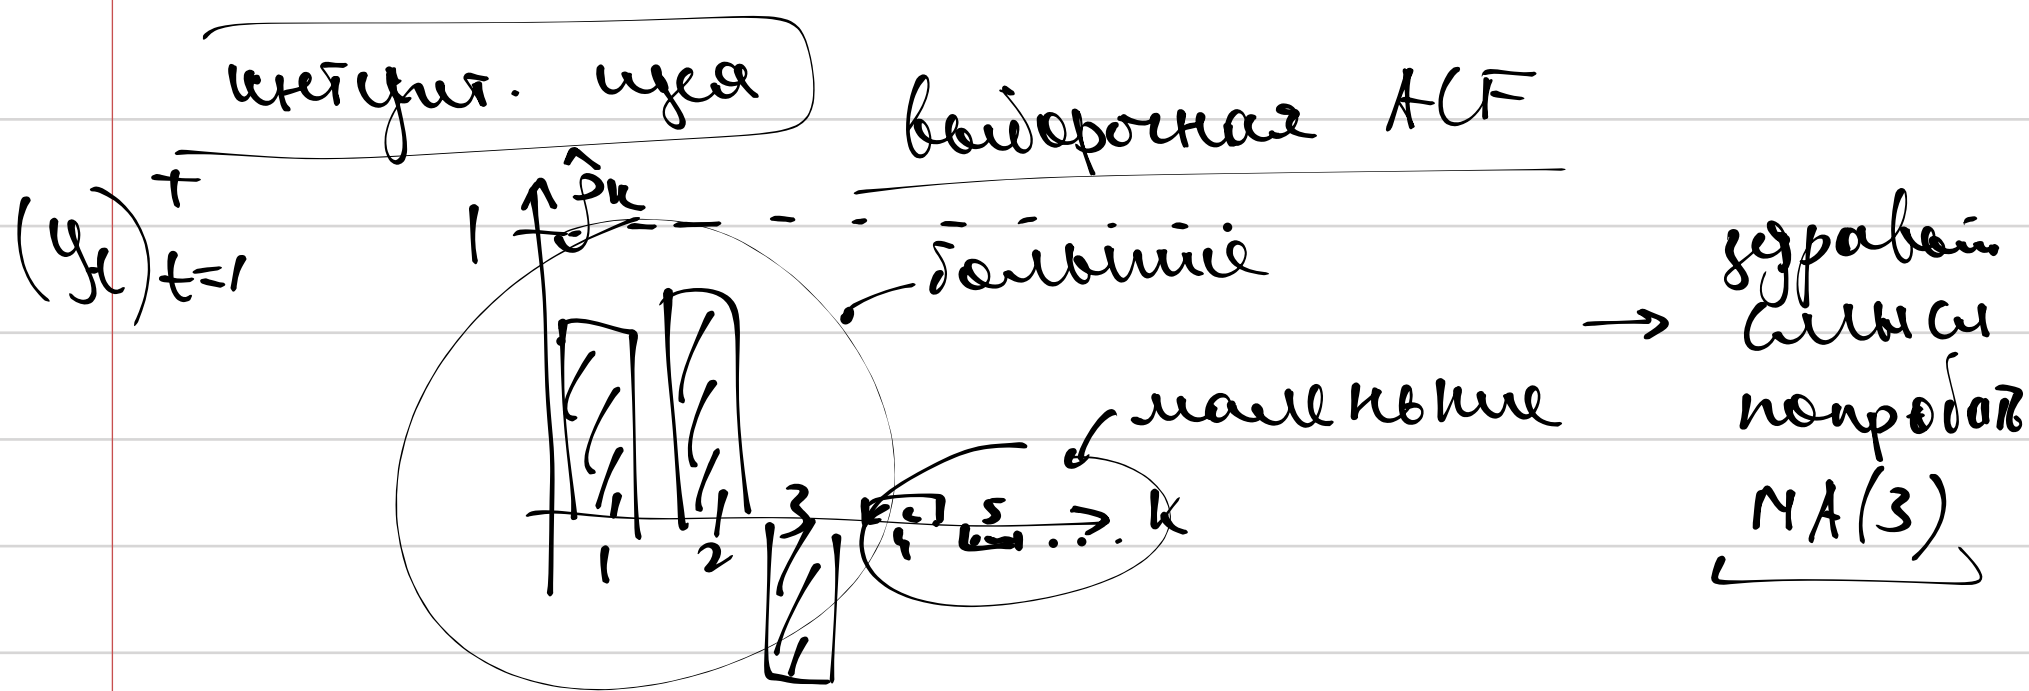 интуит. идея
выборочная ACF
(y_t)_{t=1}^T
ρ̂_k
1
большие
маленькие
1 2 3 4 5 ... k
→ здравый
смысл
попробовать
MA(3)